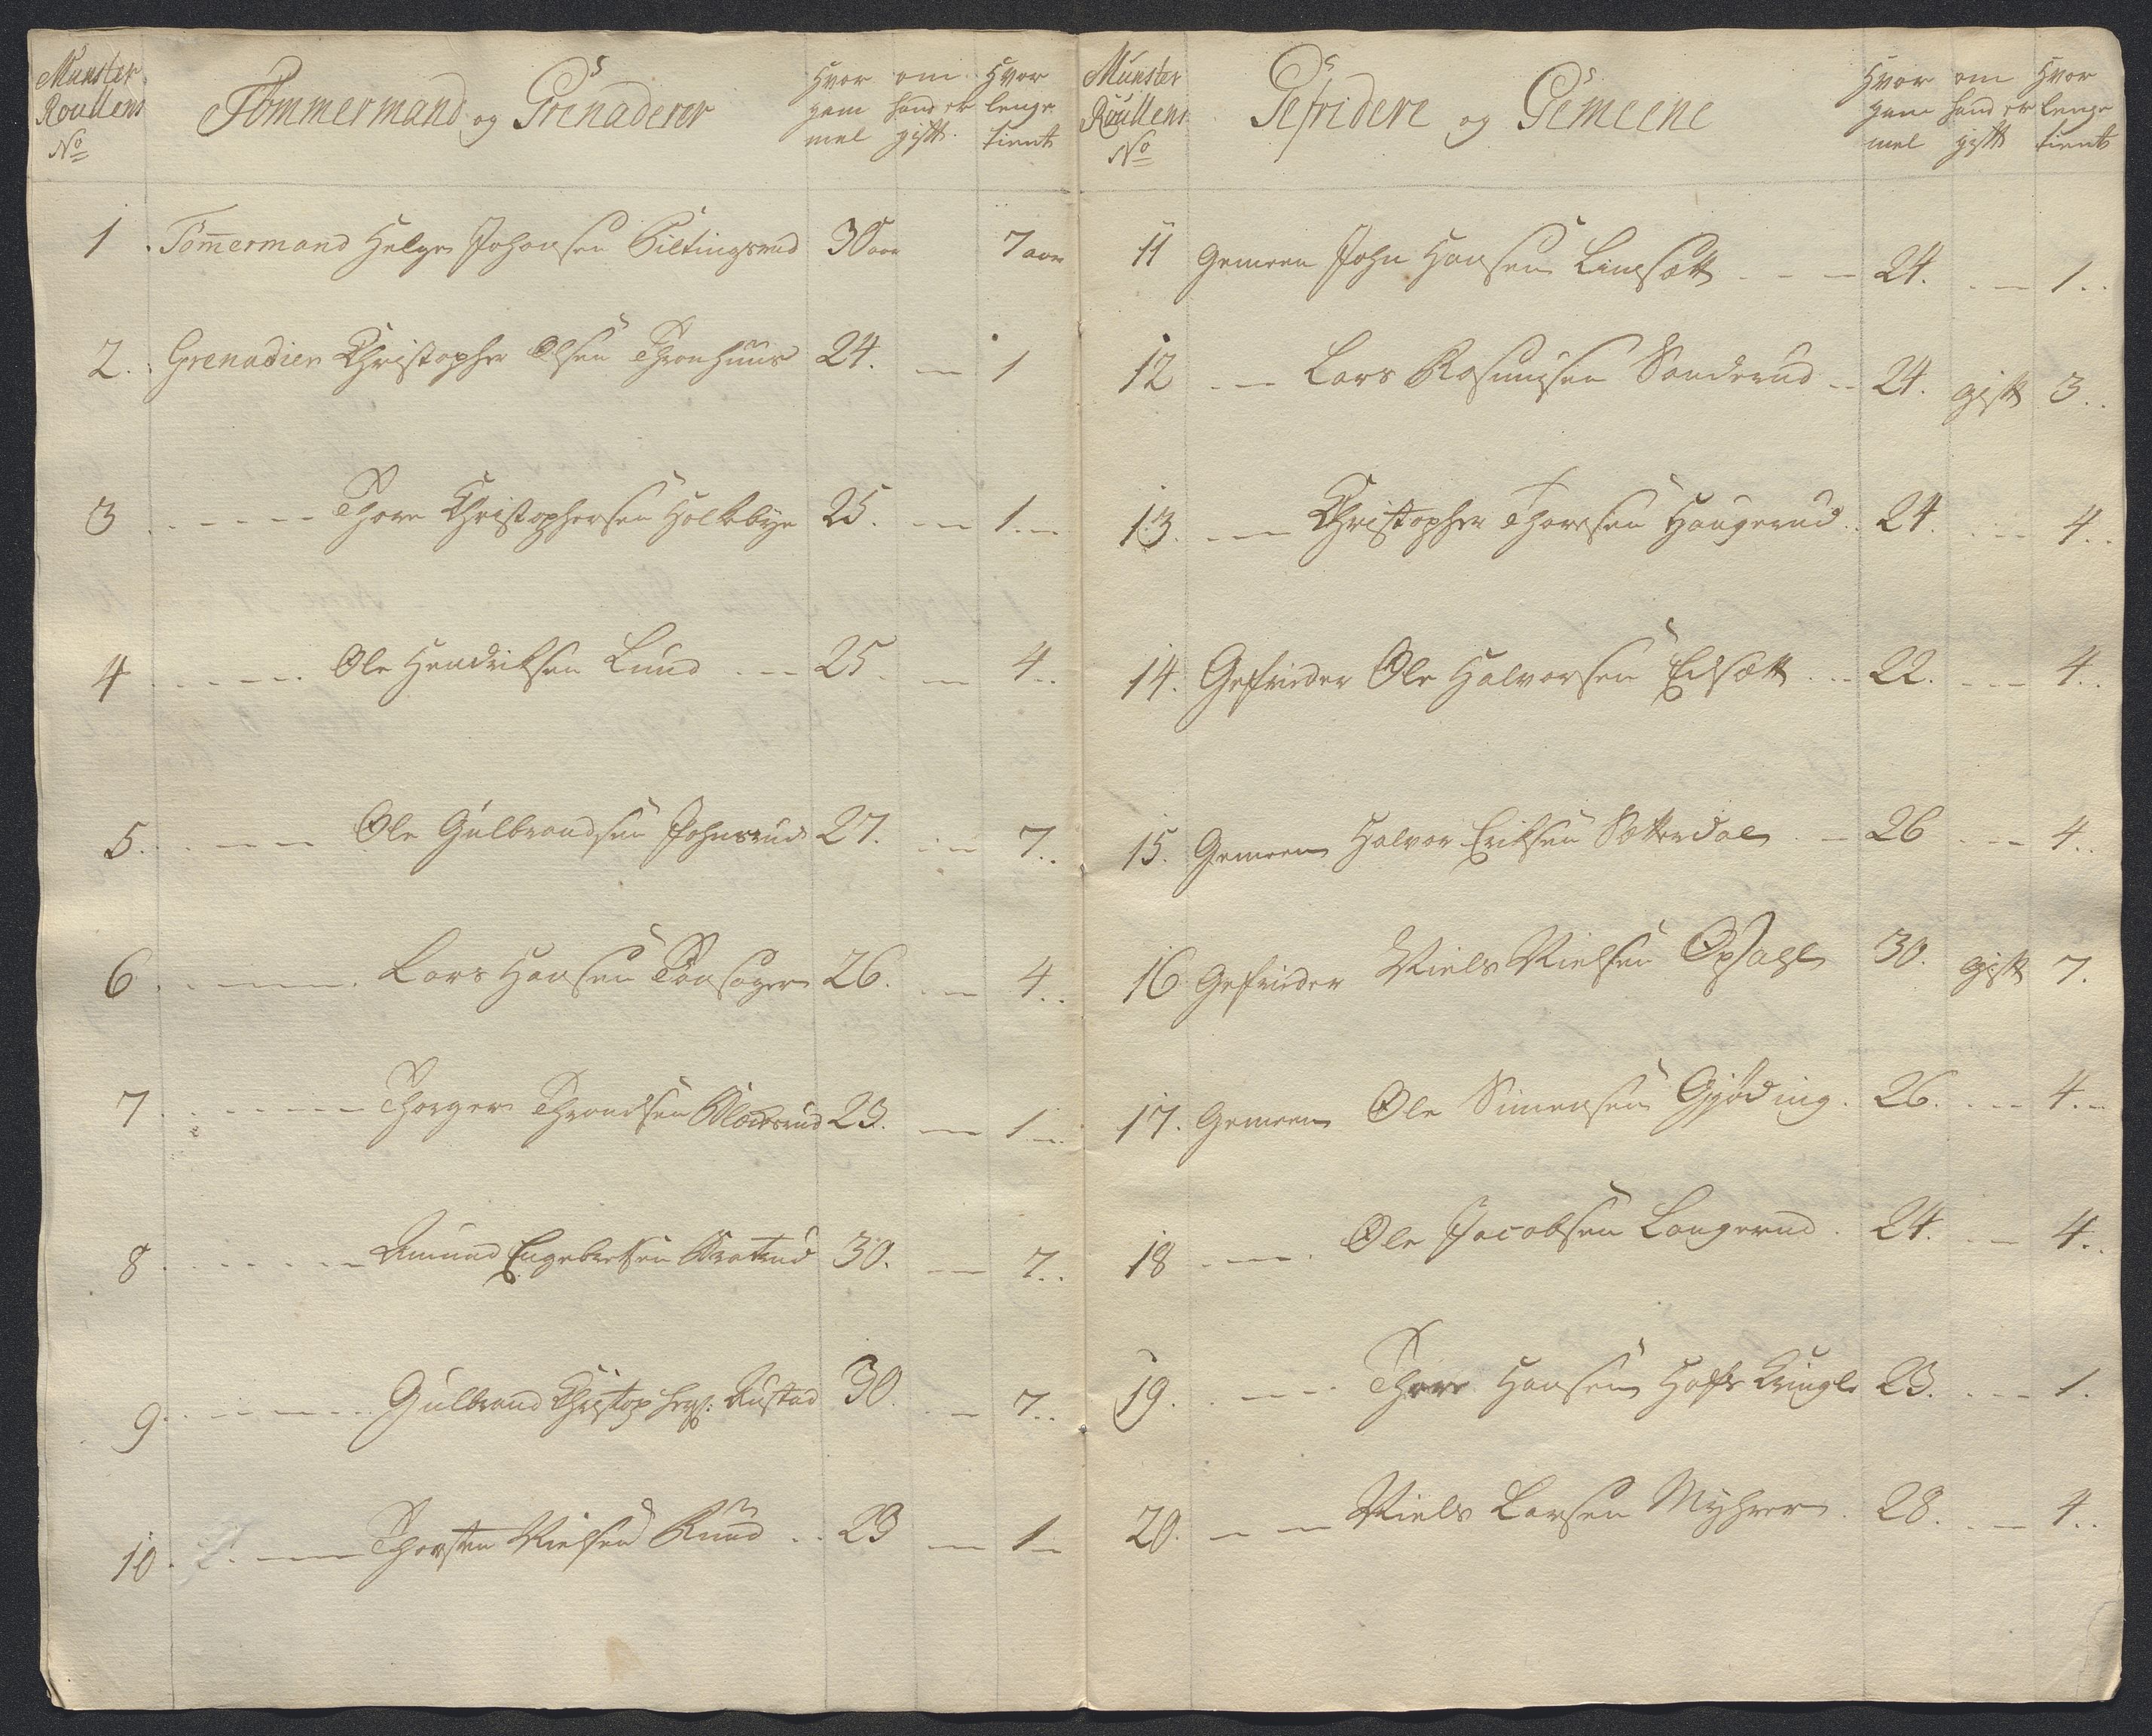 Munster Roullens No
Tömmermand og Grenaderer
Hvor gammel
om hand er gift
Hvor lenge tient
1 Tömmermand Helge Johansen Biltingsrud 30 aar 7 aar
2. Grenadier Christopher Olsen Thronhuus 24. — 1
3 Thore Christophersen Holkebye 25. — 1. —
4 Ole Hendriksen Lund 25. — 4..
5. Ole Gulbrandsen Johnsrud 27. — 7..
6 Lars Hansen 26. — 4..
7 Thorger Throndsen 23. — 1 —
8 Amund Engebretsen 30. — 7..
9 Gulbrand Christophers: Rustad 30. — 7..
10. Thorsten Nielsen Ruud 23 — 1 —
Munster Roullens No
Gefridere og Gemeene
Hvor gammel
om hand er gift
Hvor lenge tient
11 Gemeen John Hansen Linsæt 24. — 1..
12 — Lars Rasmusen Sanderud 24. gift 3..
13. — Christopher Thoresen Haugerud 24. — 4..
14. Gefrieder Ole Halvorsen Edsætt 22. — 4..
15. Gemeen Halvor Eriksen Sæterdal 26 — 4..
16 Gefrieder Niels Nielsen Opsahl 30. gift 7.
17. Gemeen Ole Simensen Gjöding. 26. — 4. —
18 — Ole Jacobsen Langerud. 24. — 4..
19. — Thore Hansen Hoffs Kringle 23. — 1.
20. — Niels Larsen Myhren. 28. — 4..